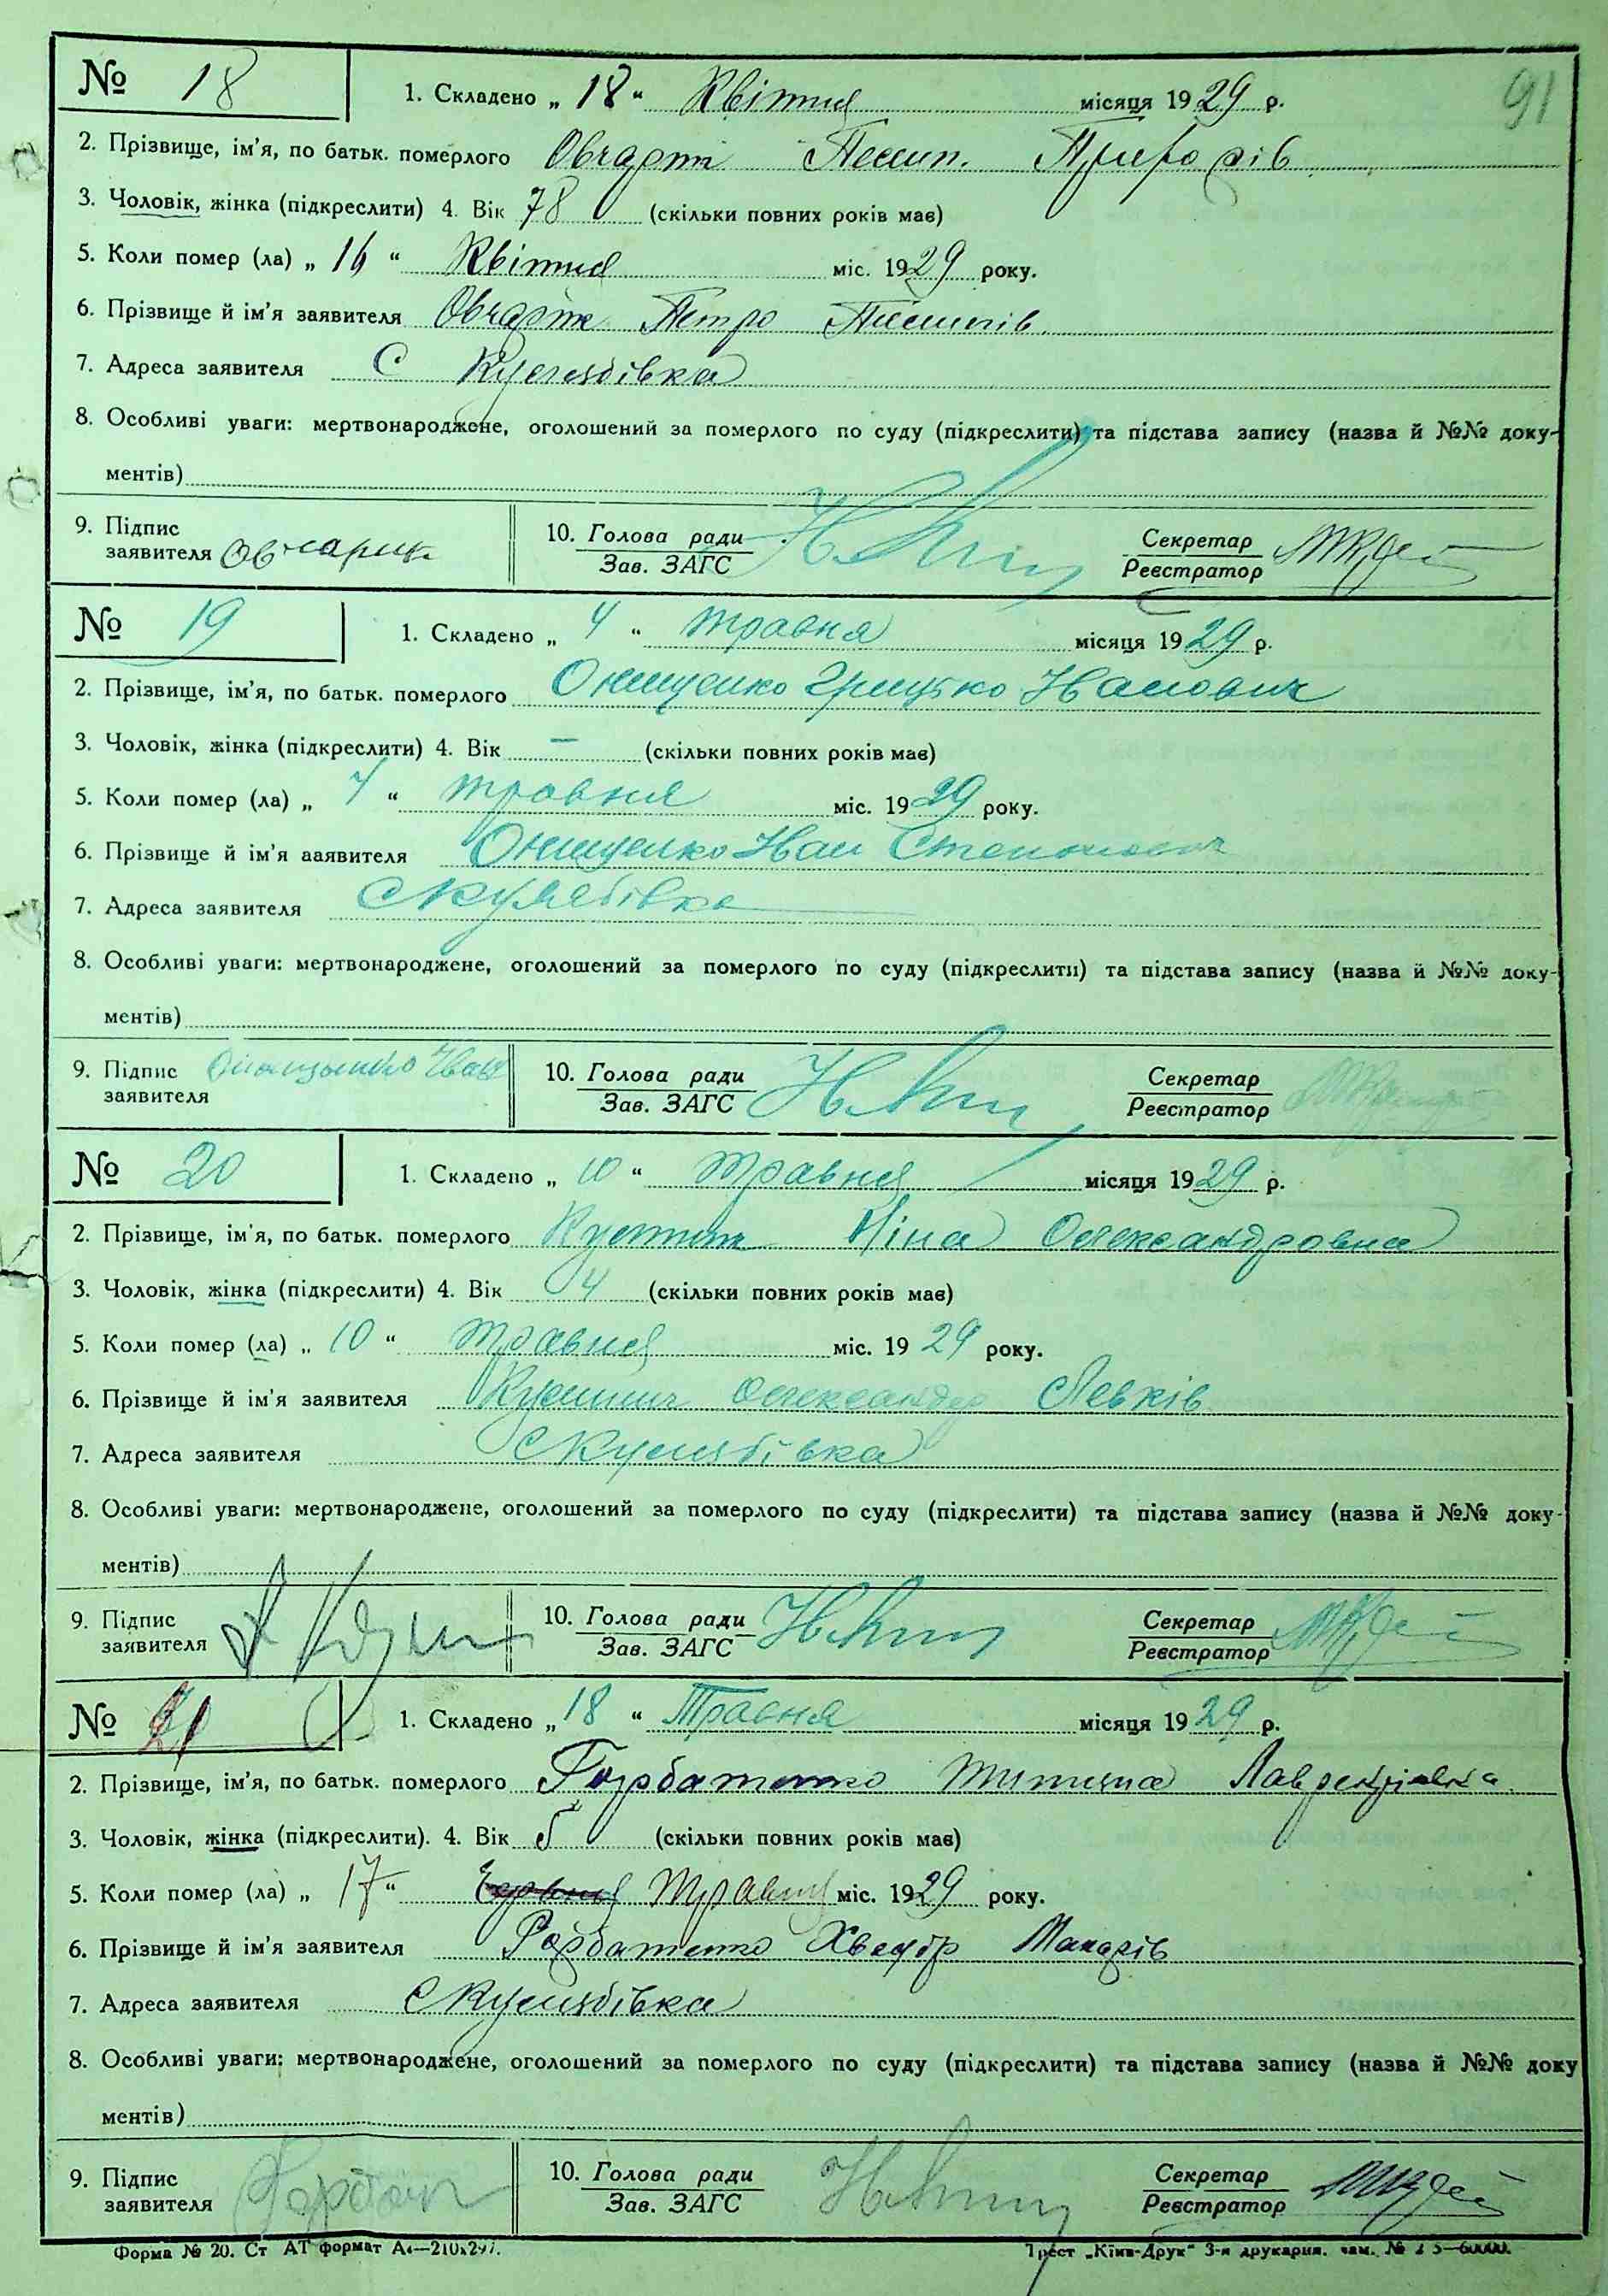 91
№ 18 1. Складено „ 18 “ Квітня місяця 1929 р.
2. Прізвище, ім'я, по батьк. померлого
3. Чоловік, жінка (підкреслити) 4. Вік 78 (скільки повних років має)
5. Коли помер (ла) „ 16 “ Квітня міс. 1929 року.
6. Прізвище й ім'я заявителя Петро
7. Адреса заявителя С Кулябівка
8. Особливі уваги: мертвонароджене, оголошений за померлого по суду (підкреслити) та підстава запису (назва й №№ доку-
ментів)
9. Підпис 10. Голова ради Секретар
заявителя Зав. ЗАГС Реєстратор
№ 19 1. Складено „ 4 “ травня місяця 1929 р.
2. Прізвище, ім'я, по батьк. померлого Онищенко Грицько Иванович
3. Чоловік, жінка (підкреслити) 4. Вік — (скільки повних років має)
5. Коли помер (ла) „ 4 “ травня міс. 1929 року.
6. Прізвище й ім'я ааявителя Онищенко Иван Степанович
7. Адреса заявителя С Кулябівка
8. Особливі уваги: мертвонароджене, оголошений за померлого по суду (підкреслити) та підстава запису (назва й №№ доку-
ментів)
9. Підпис 10. Голова ради Секретар
заявителя Зав. ЗАГС Реєстратор
№ 20 1. Складено „ 10 “ травня місяця 1929 р.
2. Прізвище, ім'я, по батьк. померлого Ніна Олександровна
3. Чоловік, жінка (підкреслити) 4. Вік 4 (скільки повних років має)
5. Коли помер (ла) „ 10 “ травня міс. 1929 року.
6. Прізвище й ім'я заявителя Олександер Левків
7. Адреса заявителя С Кулябівка
8. Особливі уваги: мертвонароджене, оголошений за померлого по суду (підкреслити) та підстава запису (назва й №№ доку-
ментів)
9. Підпис 10. Голова ради Секретар
заявителя Зав. ЗАГС Реєстратор
№ 21 1. Складено „ 18 “ Травня місяця 1929 р.
2. Прізвище, ім'я, по батьк. померлого Горбатенко
3. Чоловік, жінка (підкреслити). 4. Вік (скільки повних років має)
5. Коли помер (ла) „ 17 “ Червня Травня міс. 1929 року.
6. Прізвище й ім'я заявителя Горбатенко Хведір Макарів
7. Адреса заявителя С Кулябівка
8. Особливі уваги: мертвонароджене, оголошений за померлого по суду (підкреслити) та підстава запису (назва й №№ доку
ментів)
9. Підпис 10. Голова ради Секретар
заявителя Зав. ЗАГС Реєстратор
Форма № 20. Ст АТ формат А4—210х297. Трест „Київ-Друк“ 3-я друкарня.